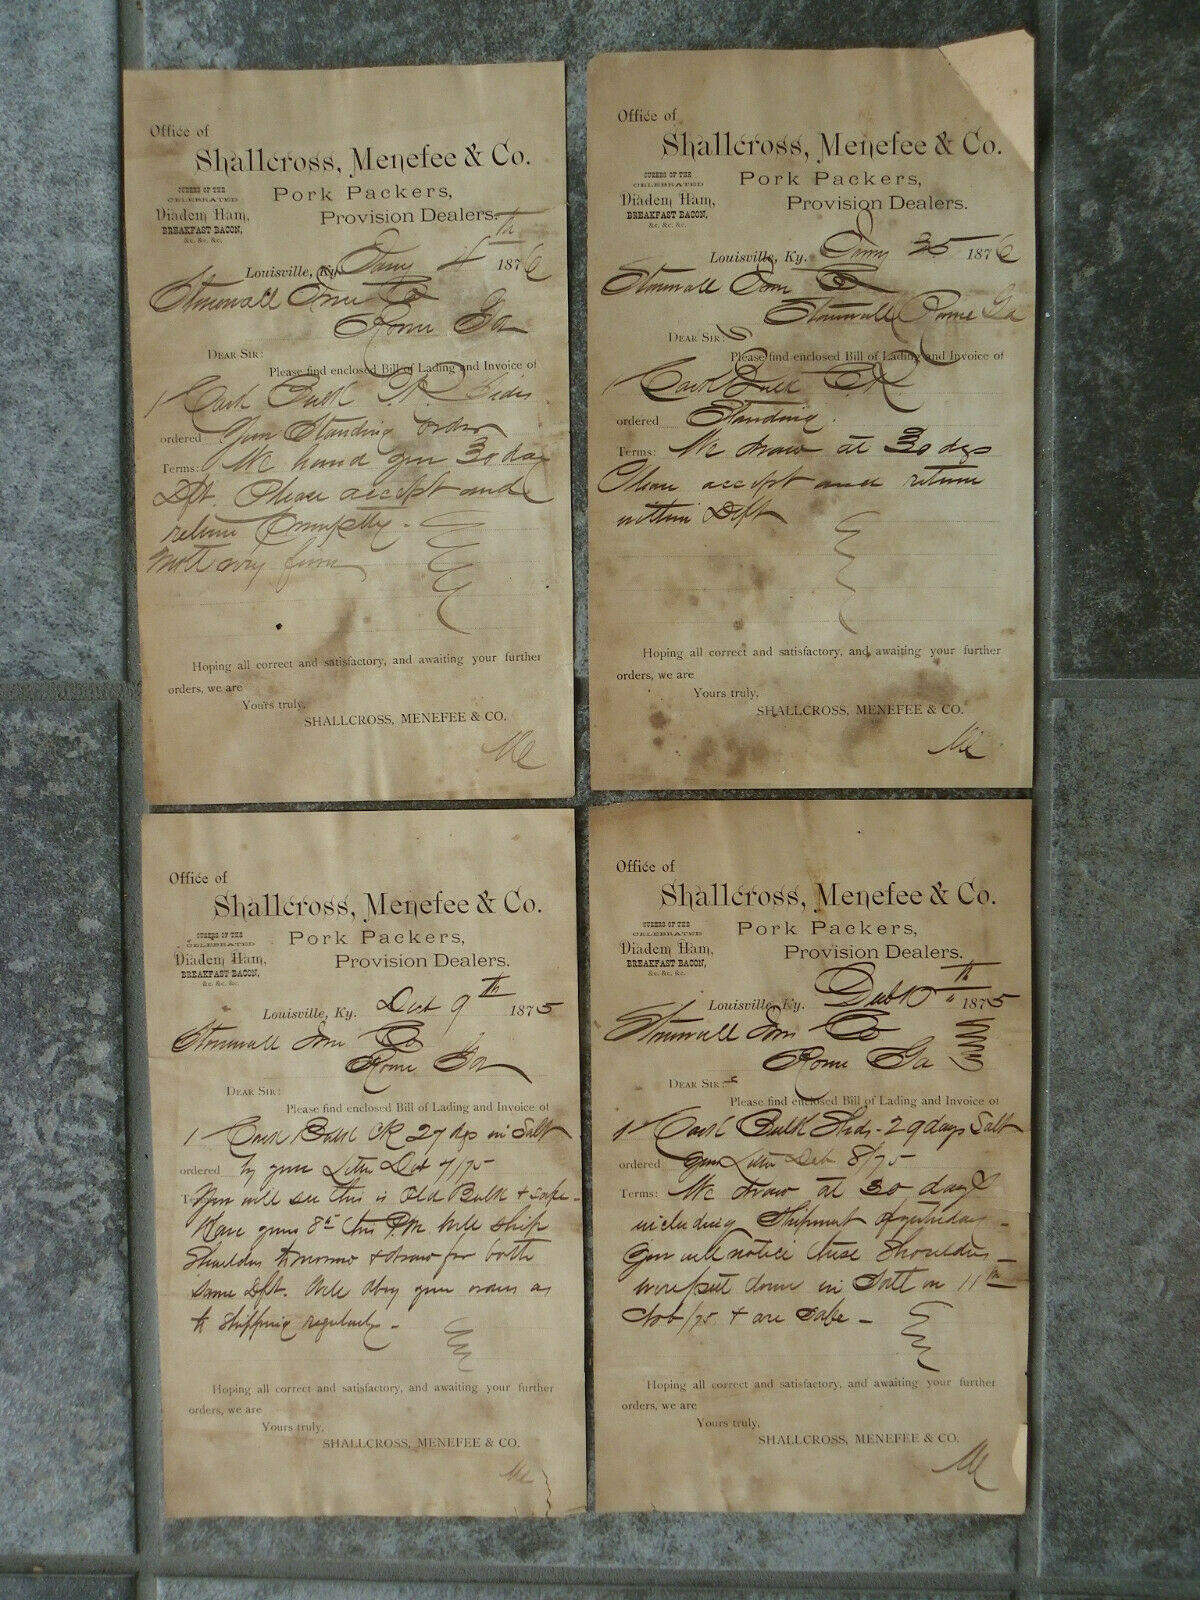 Office of
Shallcross, Menefee & Co.
CURERS OF THE
CELEBRATED
Diadem Ham,
BREAKFAST BACON,
&c. &c. &c.
Pork Packers,
Provision Dealers.
Louisville, Ky. Jany 4th 1876
Stonewall Iron Co
Rome Ga
DEAR SIR:
Please find enclosed Bill of Lading and Invoice of
1 Cask Bulk C.R. Sides
ordered Your Standing order
Terms: We hand you 30 day
Dft. Please accept and
return promptly.
very
Hoping all correct and satisfactory, and awaiting your further
orders, we are
Yours truly,
SHALLCROSS, MENEFEE & CO.
Office of
Shallcross, Menefee & Co.
CURERS OF THE
CELEBRATED
Diadem Ham,
BREAKFAST BACON,
&c. &c. &c.
Pork Packers,
Provision Dealers.
Louisville, Ky. Jany 1876
Stonewall Iron Co
Stonewall Rome Ga
DEAR SIR:
Please find enclosed Bill of Lading and Invoice of
1 Cask Bulk C.R.
ordered Standing.
Terms: We draw at 30 dys
Please accept and return
within Dft
Hoping all correct and satisfactory, and awaiting your further
orders, we are
Yours truly,
SHALLCROSS, MENEFEE & CO.
Office of
Shallcross, Menefee & Co.
CURERS OF THE
CELEBRATED
Diadem Ham,
BREAKFAST BACON,
&c. &c. &c.
Pork Packers,
Provision Dealers.
Louisville, Ky. 9th 1875
Stonewall Iron Co
Rome Ga
DEAR SIR:
Please find enclosed Bill of Lading and Invoice of
1 Cask Bulk CR 27 dys in Salt
ordered by your Letter 4/75
You will see this is Old Bulk & safe -
Have yours 8th this P.M. Will ship
Shoulders tomorrow & draw for both
same Dft. Will your orders as
to shipping regularly -
Hoping all correct and satisfactory, and awaiting your further
orders, we are
Yours truly,
SHALLCROSS, MENEFEE & CO.
Office of
Shallcross, Menefee & Co.
CURERS OF THE
CELEBRATED
Diadem Ham,
BREAKFAST BACON,
&c. &c. &c.
Pork Packers,
Provision Dealers.
Louisville, Ky. 10th 1875
Stonewall Iron Co
Rome Ga
DEAR SIR:
Please find enclosed Bill of Lading and Invoice of
1 Cask Bulk Shds - 29 days Salt
ordered Your Letter 8/75
Terms: We draw at 30 days
including Shipment of yesterday -
You will notice these Shoulders
were put down in Salt on 11th
/75 & are safe -
Hoping all correct and satisfactory, and awaiting your further
orders, we are
Yours truly,
SHALLCROSS, MENEFEE & CO.